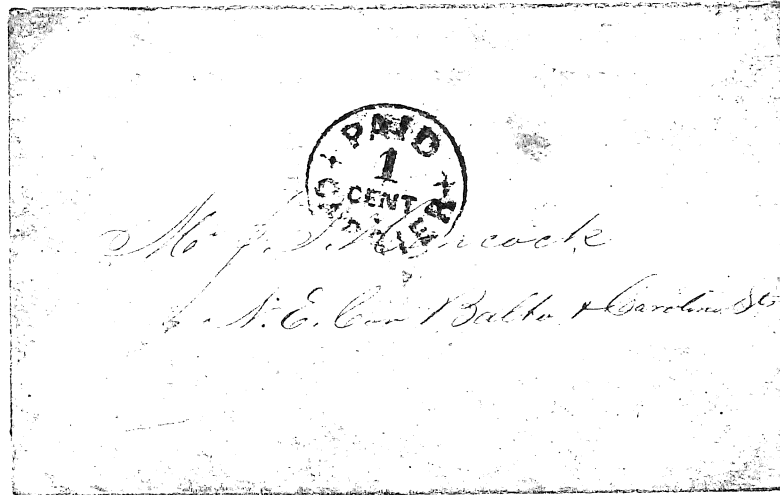 PAID
1
CENT
CARRIER
Mr J. S. Hancock
N. E. Cor Balto & Caroline Sts